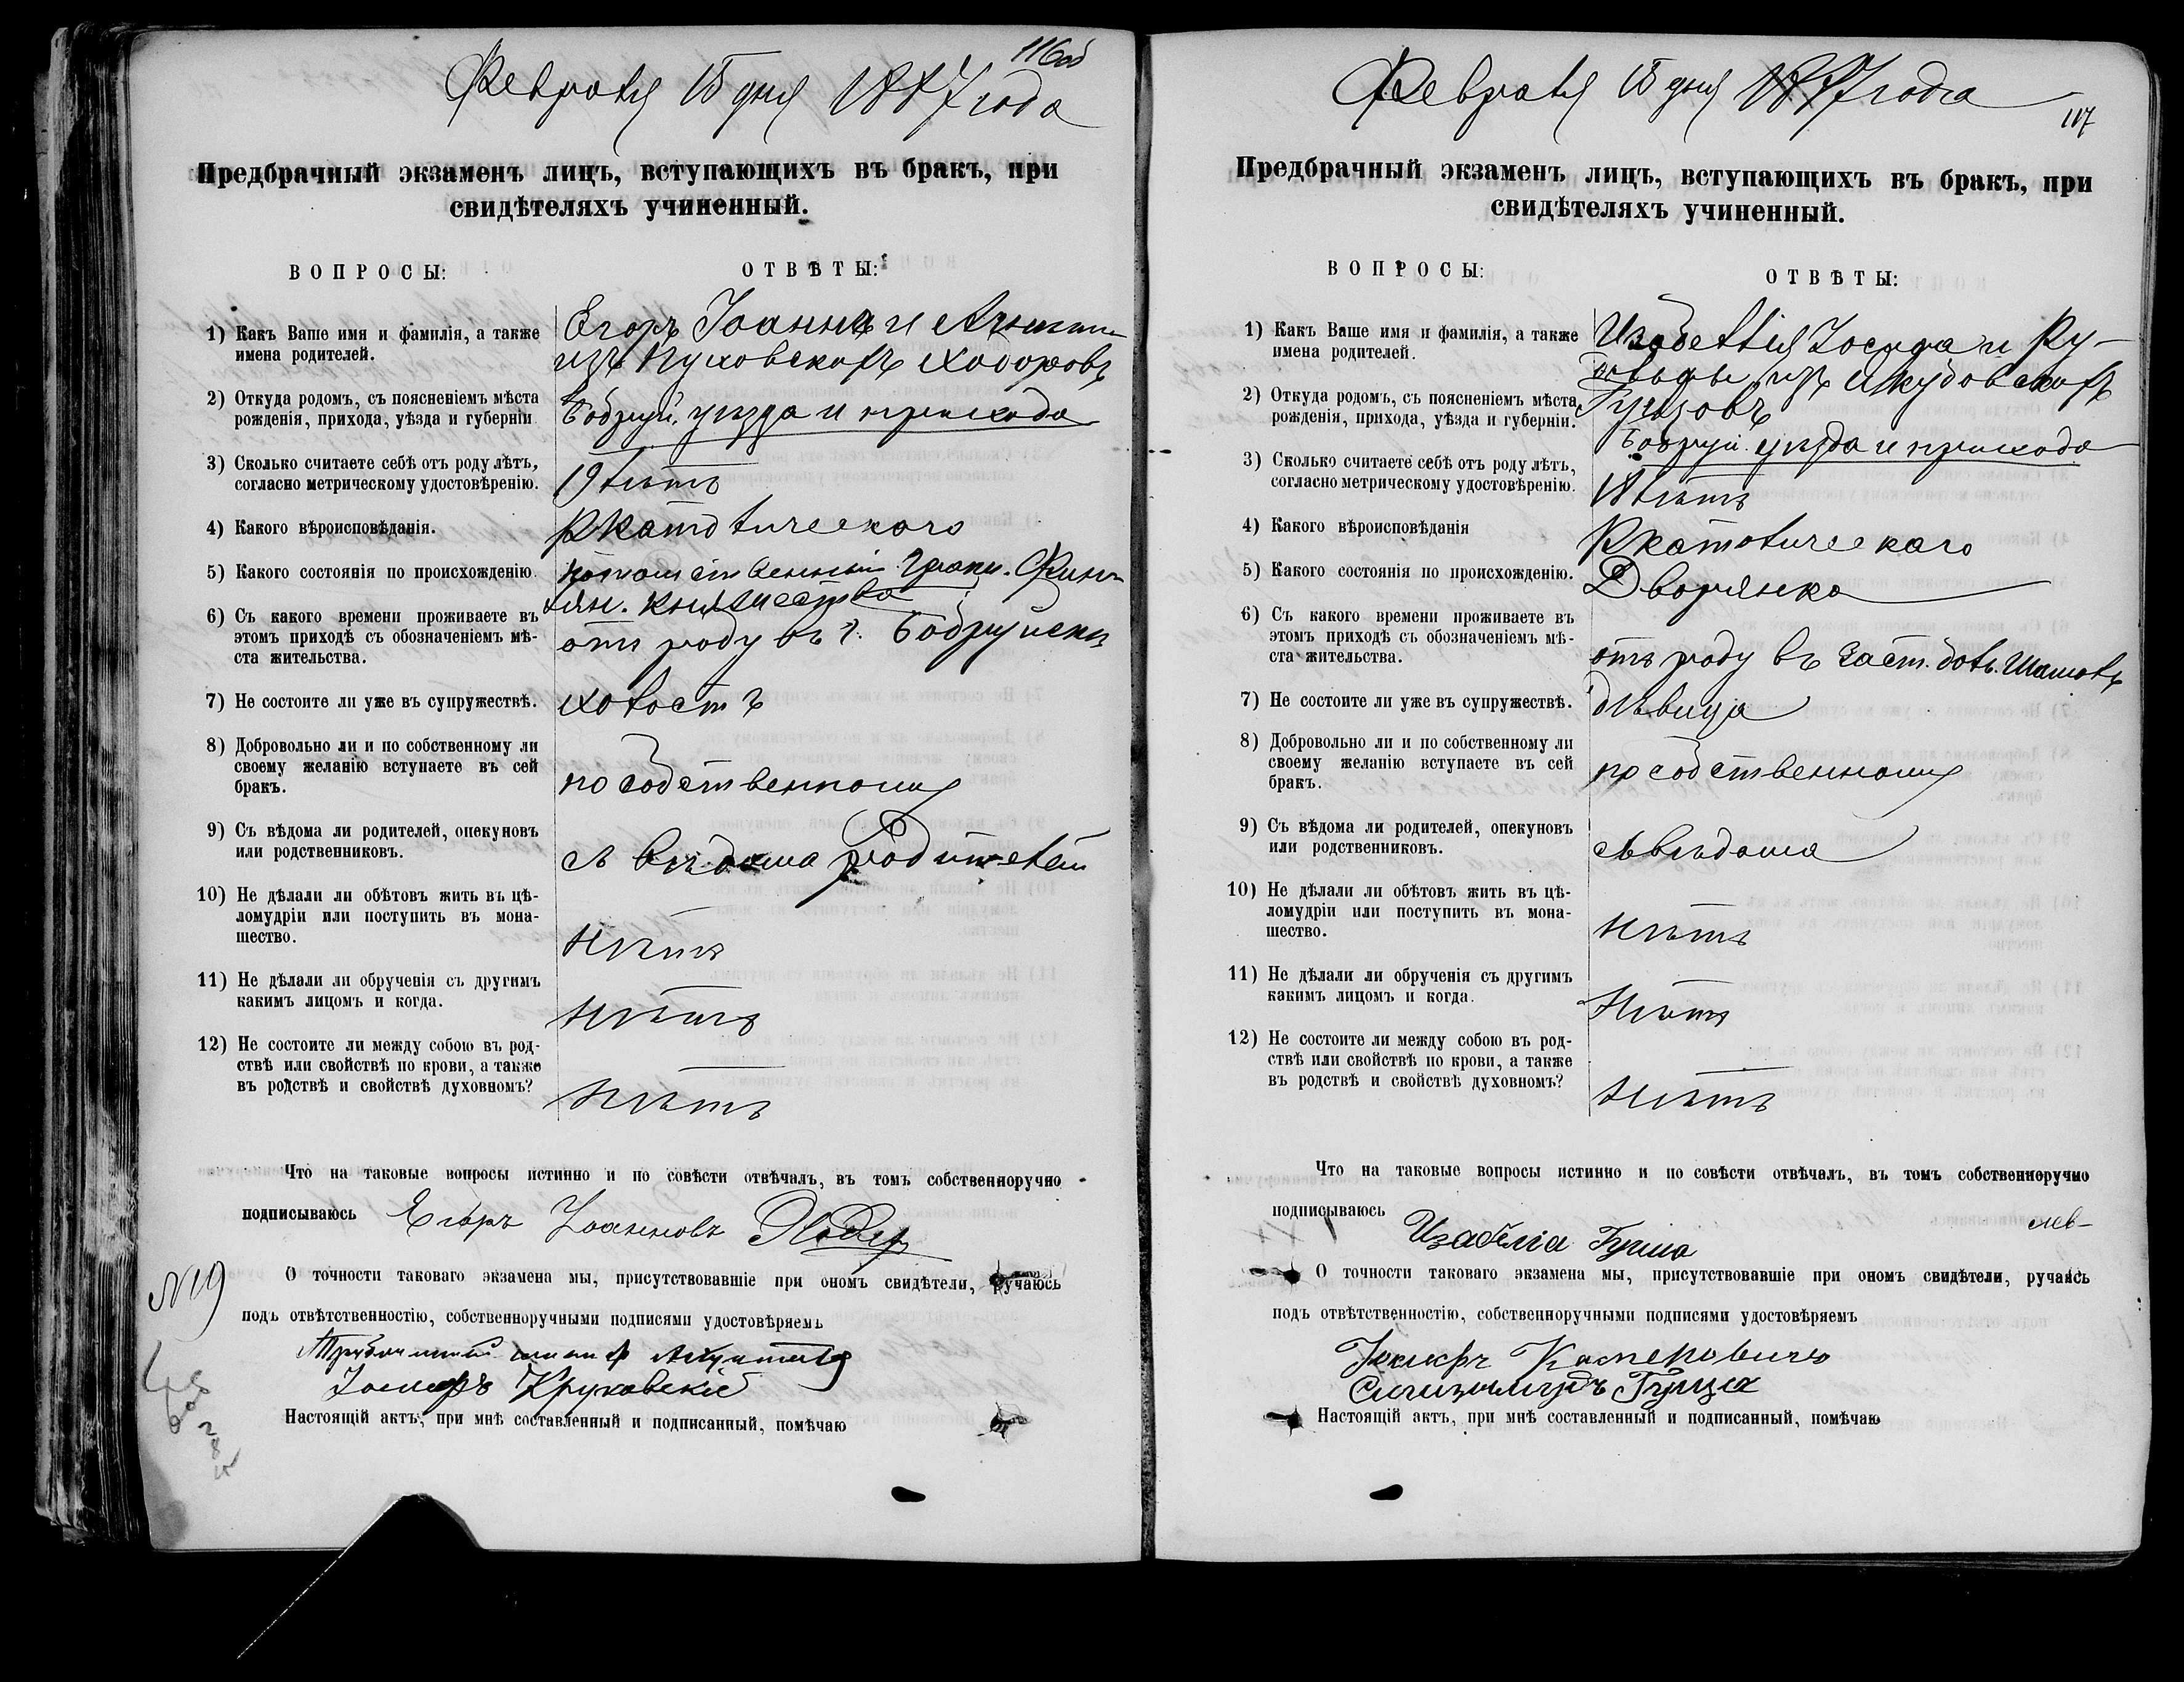 116об
Февраля 15 дня 1887 года
Предбрачный экзаменъ лицъ, вступающихъ въ бракъ, при
свидѣтеляхъ учиненный.
ВОПРОСЫ:
ОТВѢТЫ:
1) Какъ Ваше имя и фамилія, а также
имена родителей.
Егоръ Іоанна и
изъ
2) Откуда родомъ, съ поясненіемъ мѣста
рожденія, прихода, уѣзда и губерніи
Бобруй. уѣзда и прихода
3) Сколько считаете себѣ отъ роду лѣтъ,
согласно метрическому удостовѣренію.
19 лѣтъ
4) Какого вѣроисповѣданія.
Ркатолическаго
5) Какого состоянія по происхожденію.
потомственный гражд. Фин
лян. княжества
6) Съ какого времени проживаете въ
этомъ приходѣ съ обозначеніемъ мѣ-
ста жительства.
отъ роду въ г. Бобруйскѣ
7) Не состоите ли уже въ супружествѣ.
холостъ
8) Добровольно ли и по собственному ли
своему желанію вступаете въ сей
бракъ.
по собственному
9) Съ вѣдома ли родителей, опекуновъ
или родственниковъ.
съ вѣдома родителей
10) Не дѣлали ли обѣтовъ жить въ цѣ-
ломудріи или поступить въ мона-
шество.
нѣтъ
11) Не дѣлали ли обрученія съ другимъ
какимъ лицомъ и когда.
нѣтъ
12) Не состоите ли между собою въ род-
ствѣ или свойствѣ по крови, а также
въ родствѣ и свойствѣ духовномъ?
нѣтъ
Что на таковые вопросы истинно и по совѣсти отвѣчалъ, въ томъ собственноручно
подписываюсь Егоръ Іоанновъ
№19
О точности таковаго экзамена мы, присутствовавшіе при ономъ свидѣтели, ручаюсь
подъ отвѣтственностію, собственноручными подписями удостовѣряемъ
Іосифъ Круковскій
Настоящій актъ, при мнѣ составленный и подписанный, помѣчаю
Февраля 15 дня 1887 года
117
Предбрачный экзаменъ лицъ, вступающихъ въ бракъ, при
свидѣтеляхъ учиненный.
ВОПРОСЫ:
ОТВѢТЫ:
1) Какъ Ваше имя и фамилія, а также
имена родителей.
Изабеллія Іосифа и Ру-
изъ Якубовскихъ
2) Откуда родомъ, съ поясненіемъ мѣста
рожденія, прихода, уѣзда и губерніи.
Бобруй. уѣзда и прихода
3) Сколько считаете себѣ отъ роду лѣтъ,
согласно метрическому удостовѣренію.
18 лѣтъ
4) Какого вѣроисповѣданія
Ркатолическаго
5) Какого состоянія по происхожденію.
Дворянка
6) Съ какого времени проживаете въ
этомъ приходѣ съ обозначеніемъ мѣ-
ста жительства.
отъ роду въ
7) Не состоите ли уже въ супружествѣ.
дѣвица
8) Добровольно ли и по собственному ли
своему желанію вступаете въ сей
бракъ.
по собственному
9) Съ вѣдома ли родителей, опекуновъ
или родственниковъ.
съ вѣдома
10) Не дѣлали ли обѣтовъ жить въ цѣ-
ломудріи или поступить въ мона-
шество.
нѣтъ
11) Не дѣлали ли обрученія съ другимъ
какимъ лицомъ и когда.
нѣтъ
12) Не состоите ли между собою въ род-
ствѣ или свойствѣ по крови, а также
въ родствѣ и свойствѣ духовномъ?
нѣтъ
Что на таковые вопросы истинно и по совѣсти отвѣчалъ, въ томъ собственноручно
подписываюсь
Изабеліа
О точности таковаго экзамена мы, присутствовавшіе при ономъ свидѣтели, ручаясь
подъ отвѣтственностію, собственноручными подписями удостовѣряемъ
Настоящій актъ, при мнѣ составленный и подписанный, помѣчаю